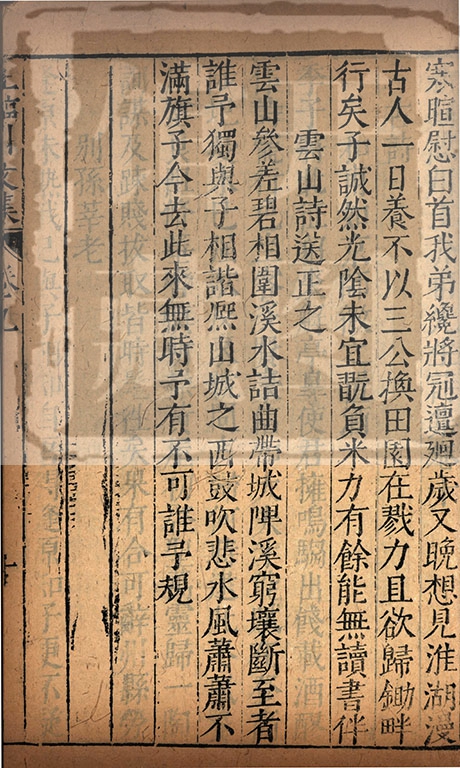 寒暄慰白首我弟纔將冠邅廻歲又晚想見淮湖漫
古人一日養不以三公換田園在戮力且欲歸鋤畔
行矣子誠然光陰未宜翫負米力有餘能無讀書伴
雲山詩送正之
雲山參差碧相圍溪水詰曲帶城陴溪窮壤斷至者
誰予獨與子相諧熈山城之西鼓吹悲水風蕭蕭不
滿旗子今去此來無時予有不可誰予規
別孫莘老